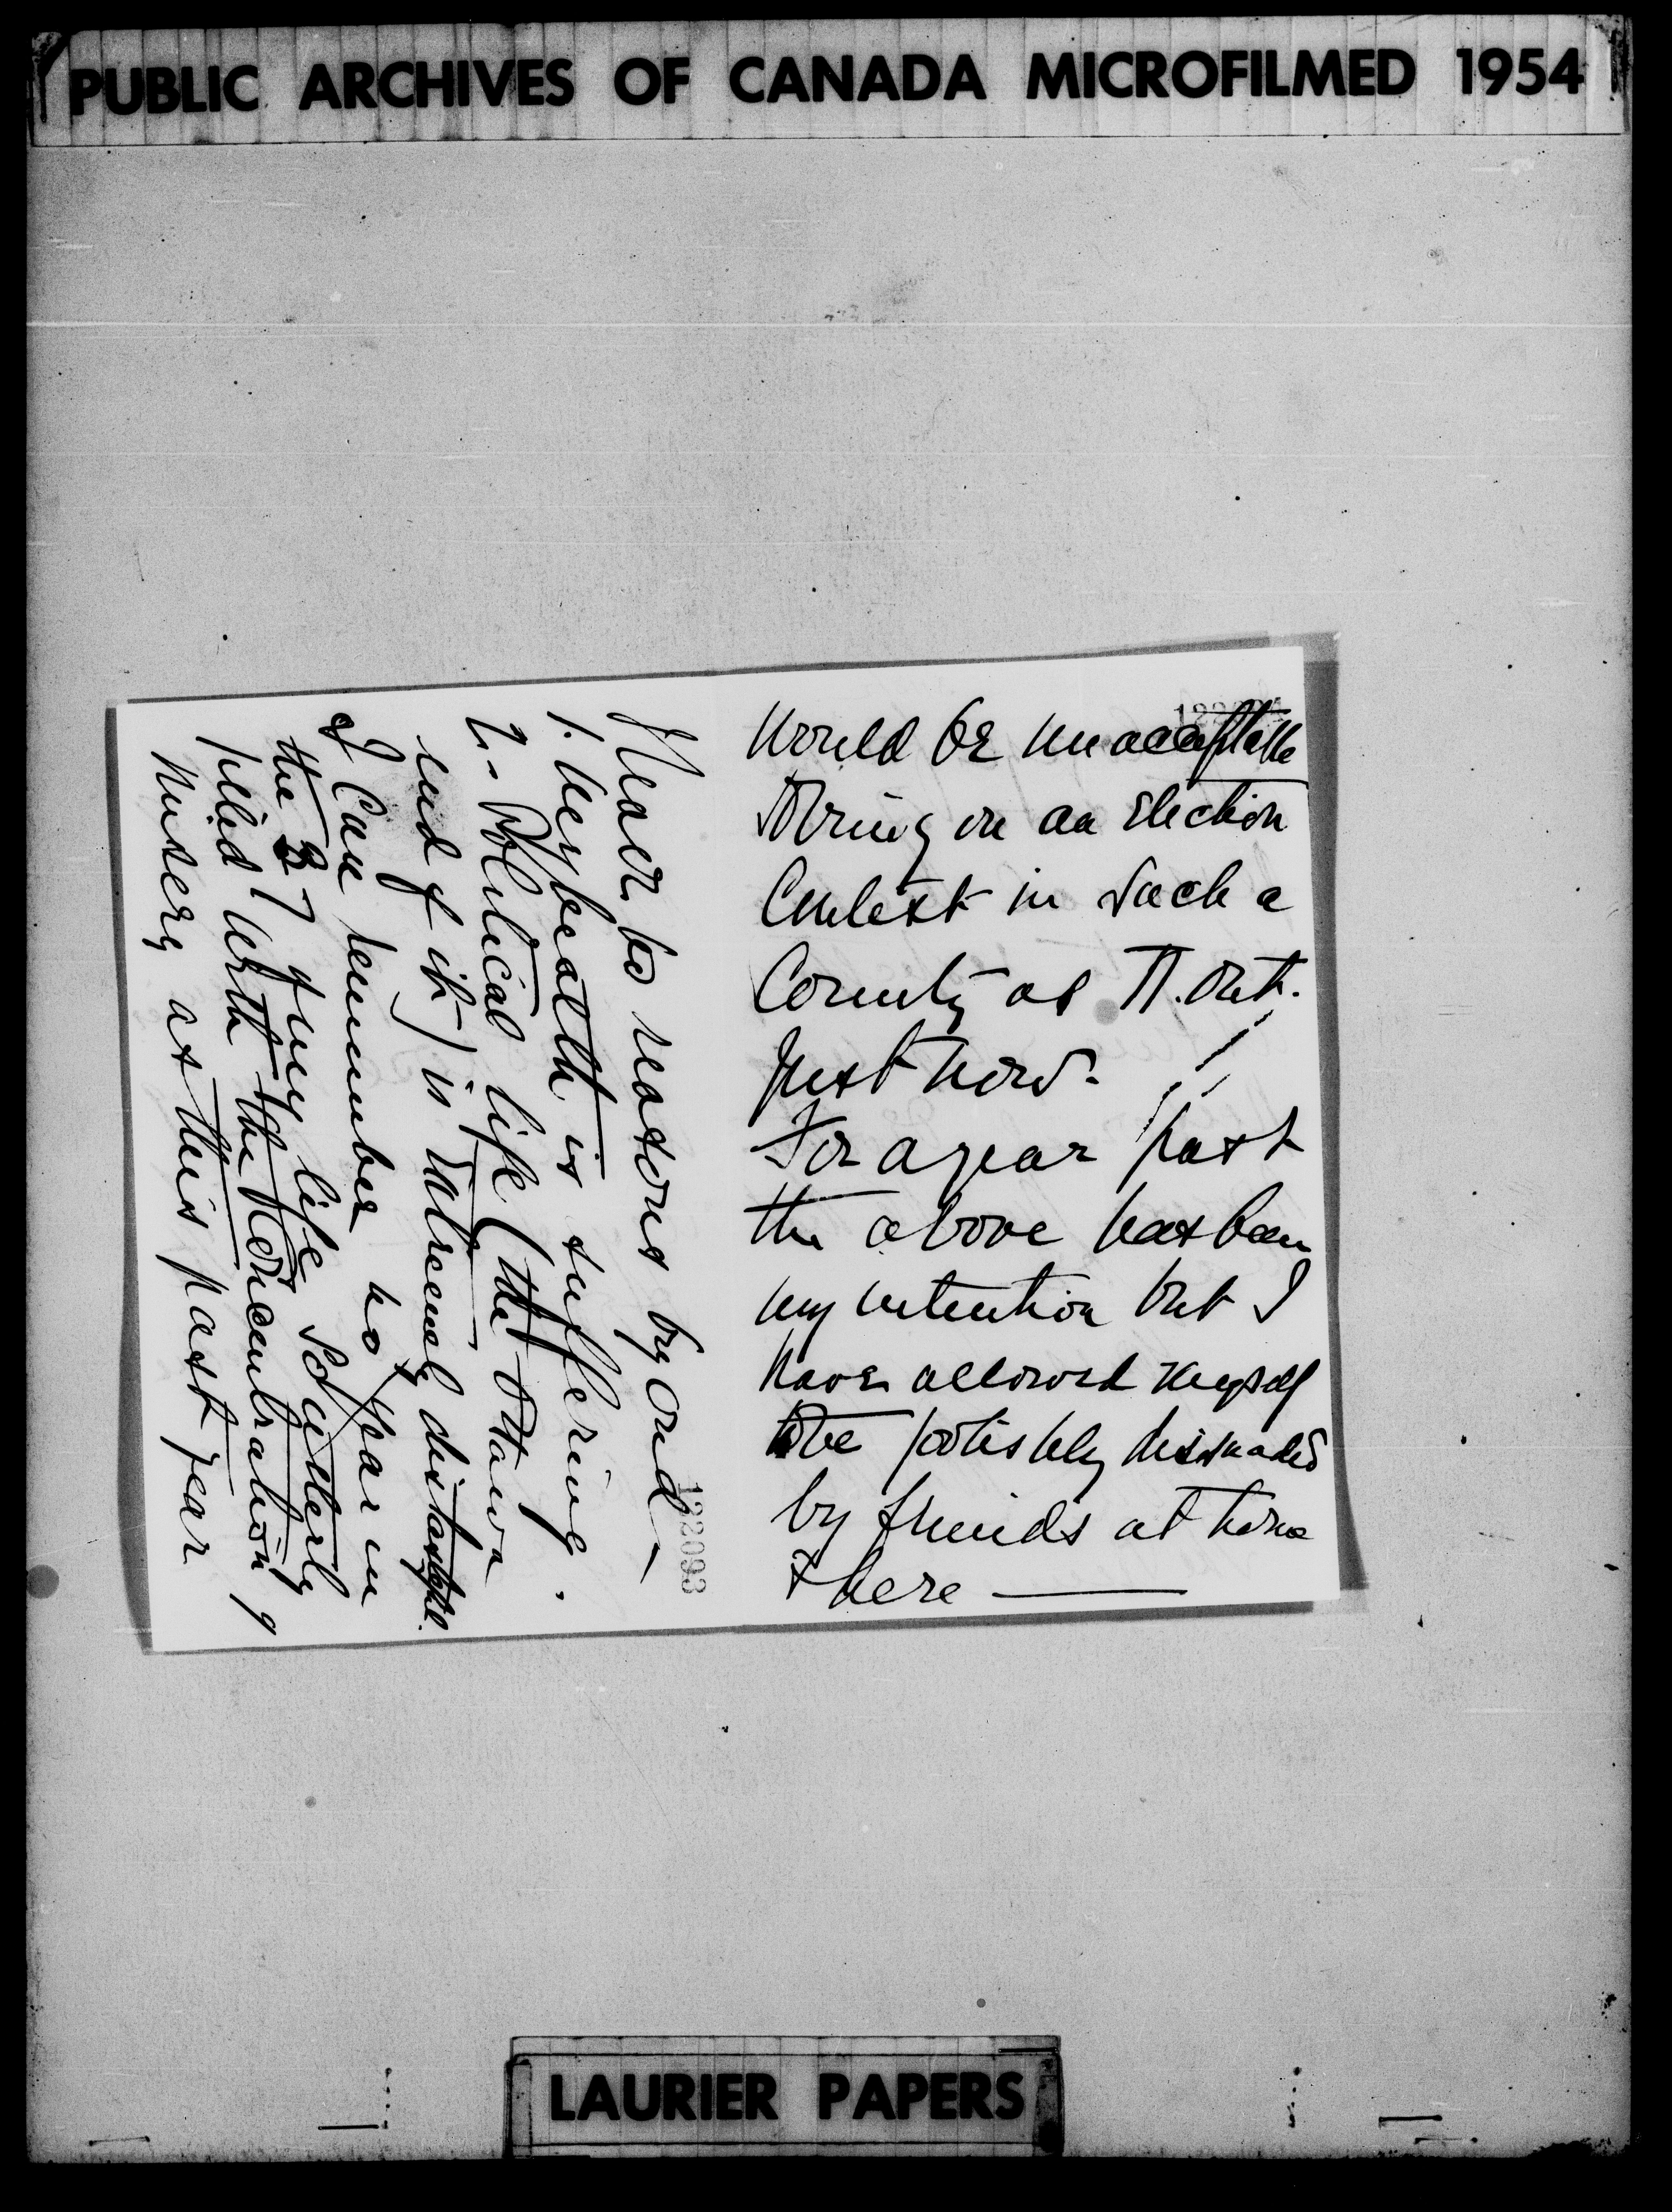 PUBLIC ARCHIVES OF CANADA MICROFILMED 1954
would be unacceptable
to bring on an election
Contest in such a
County as N. Ont.
just now.
For a year past
the above has been
my intention but I
have allowed myself
to be foolishly dissuaded
by friends at home
& here
I leave for reasons beyond
1. My health is suffering.
2. Political life (the Ottawa
end of it) is extremely distasteful.
I can remember no year in
the 37 of my life so utterly
filled with the concentration of
misery as this past year
122093
LAURIER PAPERS